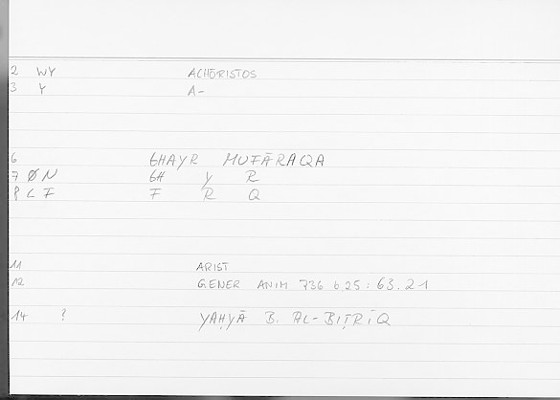 2 WY ACHŌRISTOS
3 Y A-
6 GHAYR MUFĀRAQA
7 ØN GH Y R
8 LF F R Q
11 ARIST
12 GENER ANIM 736 b 25 : 63.21
14 ? YAḤYĀ B. AL-BIṬRĪQ